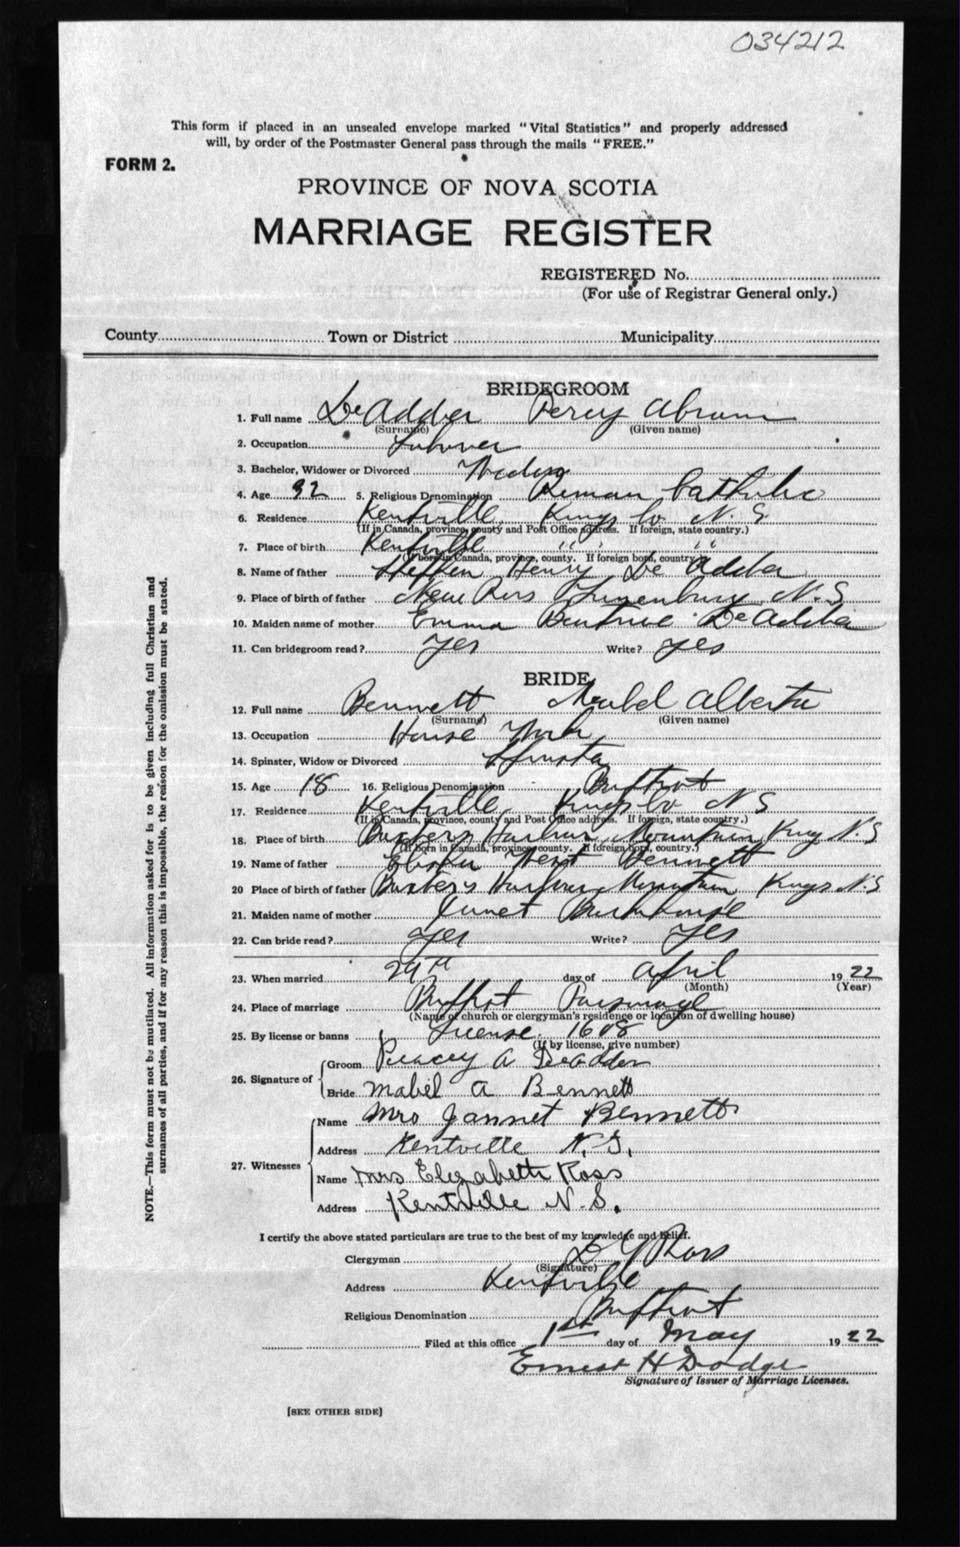 034212
This form if placed in an unsealed envelope marked "Vital Statistics" and properly addressed
will, by order of the Postmaster General pass through the mails "FREE."
FORM 2.
PROVINCE OF NOVA SCOTIA
MARRIAGE REGISTER
REGISTERED No.
(For use of Registrar General only.)
County Town or District Municipality
BRIDEGROOM
1. Full name DeAdder Percy Abram
(Surname) (Given name)
2. Occupation Laborer
3. Bachelor, Widower or Divorced
4. Age 5. Religious Denomination Roman Catholic
6. Residence Kentville, Kings Co N.S
(If in Canada, province, county and Post Office address. If foreign, state country.)
7. Place of birth Kentville " "
(If born in Canada, province, county. If foreign born, country.)
8. Name of father Stephen Henry De Adder
9. Place of birth of father New Ross Lunenburg N.S
10. Maiden name of mother Emma Beatrice DeAdder
11. Can bridegroom read? Yes Write? Yes
BRIDE
12. Full name Bennett Mabel Alberta
(Surname) (Given name)
13. Occupation House Work
14. Spinster, Widow or Divorced Spinster
15. Age 18 16. Religious Denomination Baptist
17. Residence Kentville, Kings Co N S
(If in Canada, province, county and Post Office address. If foreign, state country.)
18. Place of birth Baxters Harbour Mountain Kings N.S
(If born in Canada, province, county. If foreign born, country.)
19. Name of father West Bennett
20 Place of birth of father Baxter's Harbour Mountain Kings N.S
21. Maiden name of mother Janet
22. Can bride read? Yes Write? Yes
23. When married 29th day of April 1922
(Month) (Year)
24. Place of marriage Baptist Parsonage
(Name of church or clergyman's residence or location of dwelling house)
25. By license or banns License 1608
(If by license, give number)
26. Signature of
Groom Peircey A Deadder
Bride Mabel A Bennett
27. Witnesses
Name Mrs Jannet Bennett
Address Kentville N.S.
Name Mrs Elizabeth Ross
Address Kentville N.S.
I certify the above stated particulars are true to the best of my knowledge and belief.
Clergyman Ross
(Signature)
Address Kentville
Religious Denomination Baptist
Filed at this office 1st day of May 1922
Ernest H Dodge
Signature of Issuer of Marriage Licenses.
[SEE OTHER SIDE]
NOTE.—This form must not be mutilated. All information asked for is to be given including full Christian and
surnames of all parties, and if for any reason this is impossible, the reason for the omission must be stated.